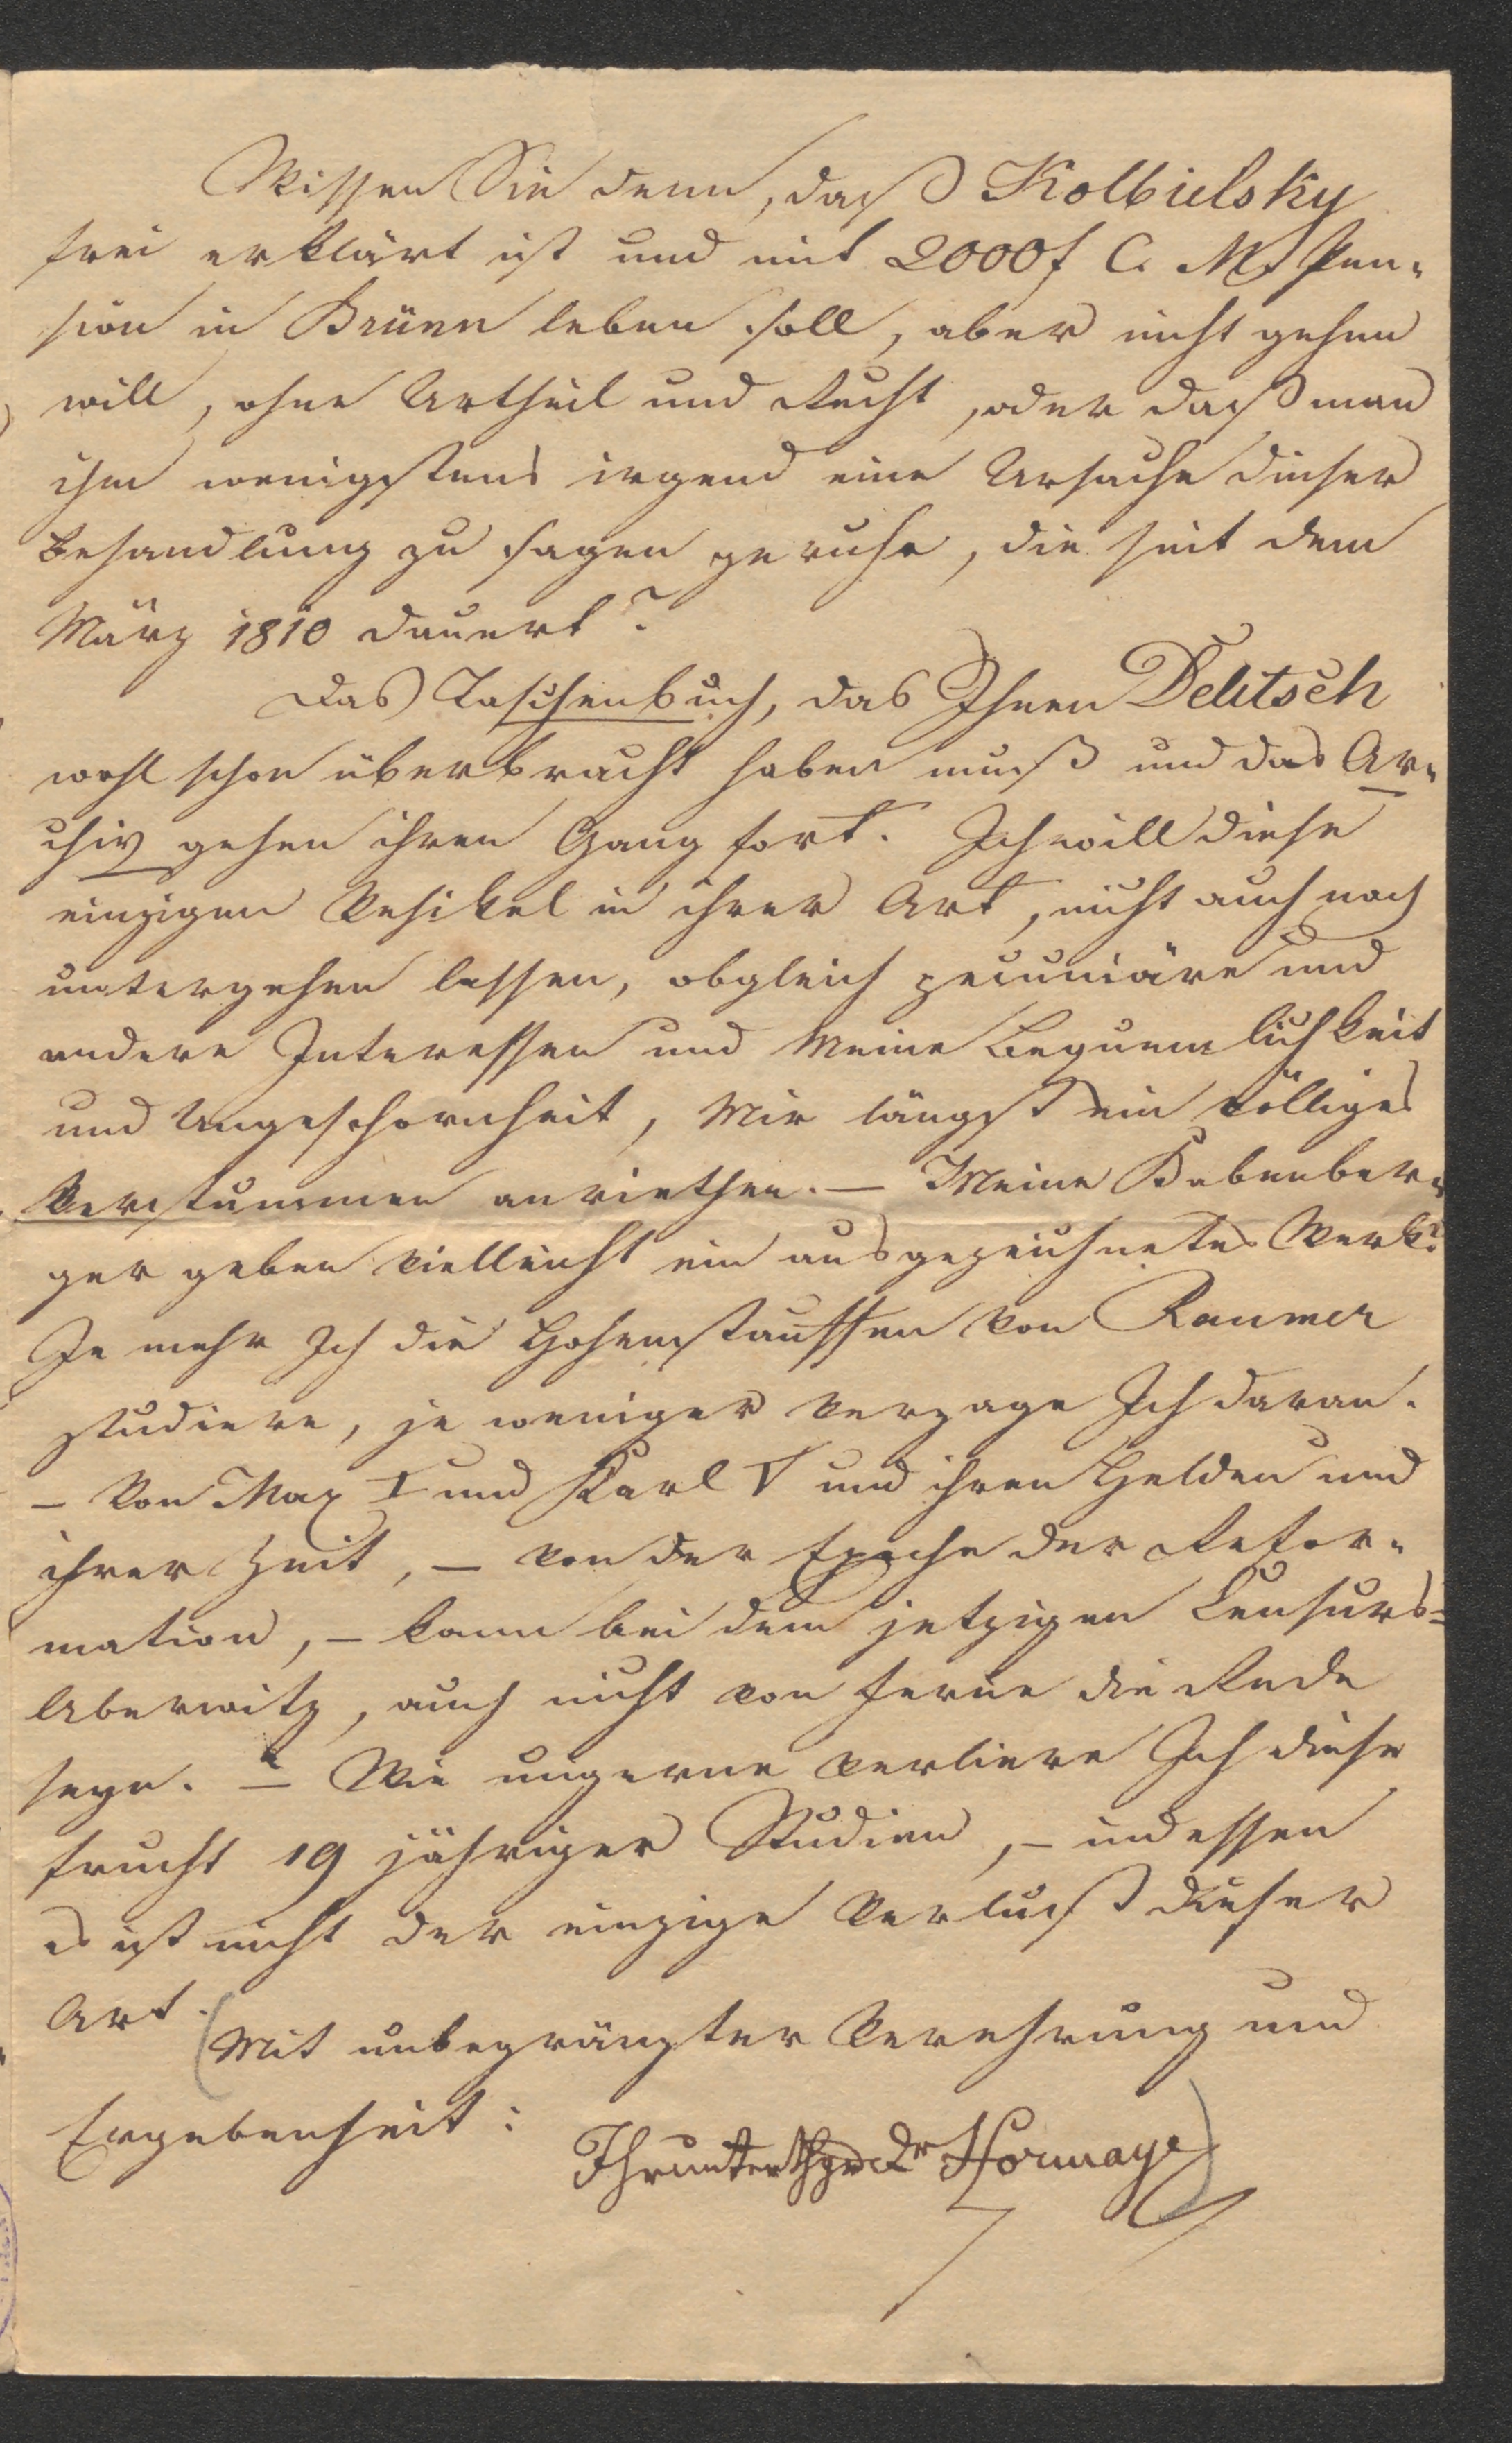 Wissen Sie denn, daß Kolbielsky
frei erklärt ist und mit 2000 f C. M. Pen-
sion in Brünn leben soll, aber nicht gehen
will, ohne Urtheil und Recht, oder daß man
ihm wenigstens irgend eine Ursache dieser
Behandlung zu sagen geruhe, die seit dem
März 1810 dauert?
Das Taschenbuch, das Ihnen Delitsch
wohl schon überbracht haben muß und das Ar-
chiv gehen ihren Gang fort. Ich will diese
einzigen Vehikel in ihrer Art, nicht auch noch
untergehen lassen, obgleich pecuniäre und
andere Interessen und Meine Bequemlichkeit
und Ungeschornheit, Mir längst ein völliges
Verstummen anriethen. — Meine Babenber-
ger geben vielleicht ein ausgezeichnetes Werk.
Je mehr Ich die Hohenstauffen von Raumer
studiere, je weniger verzage Ich daran.
— Von Max I und Karl V und ihren Helden und
ihrer Zeit, — von der Epoche der Refor-
mation, — kann bei dem jetzigen Censurs-
Aberwitz, auch nicht von ferne die Rede
seyn. — Wie ungerne verliere Ich diese
Frucht 19 jähriger Studien, — indessen
es ist nicht der einzige Verlust dieser
Art.
(Mit unbegränzter Verehrung und
Ergebenheit:
Ihr unterthgr Dr Hormayr)